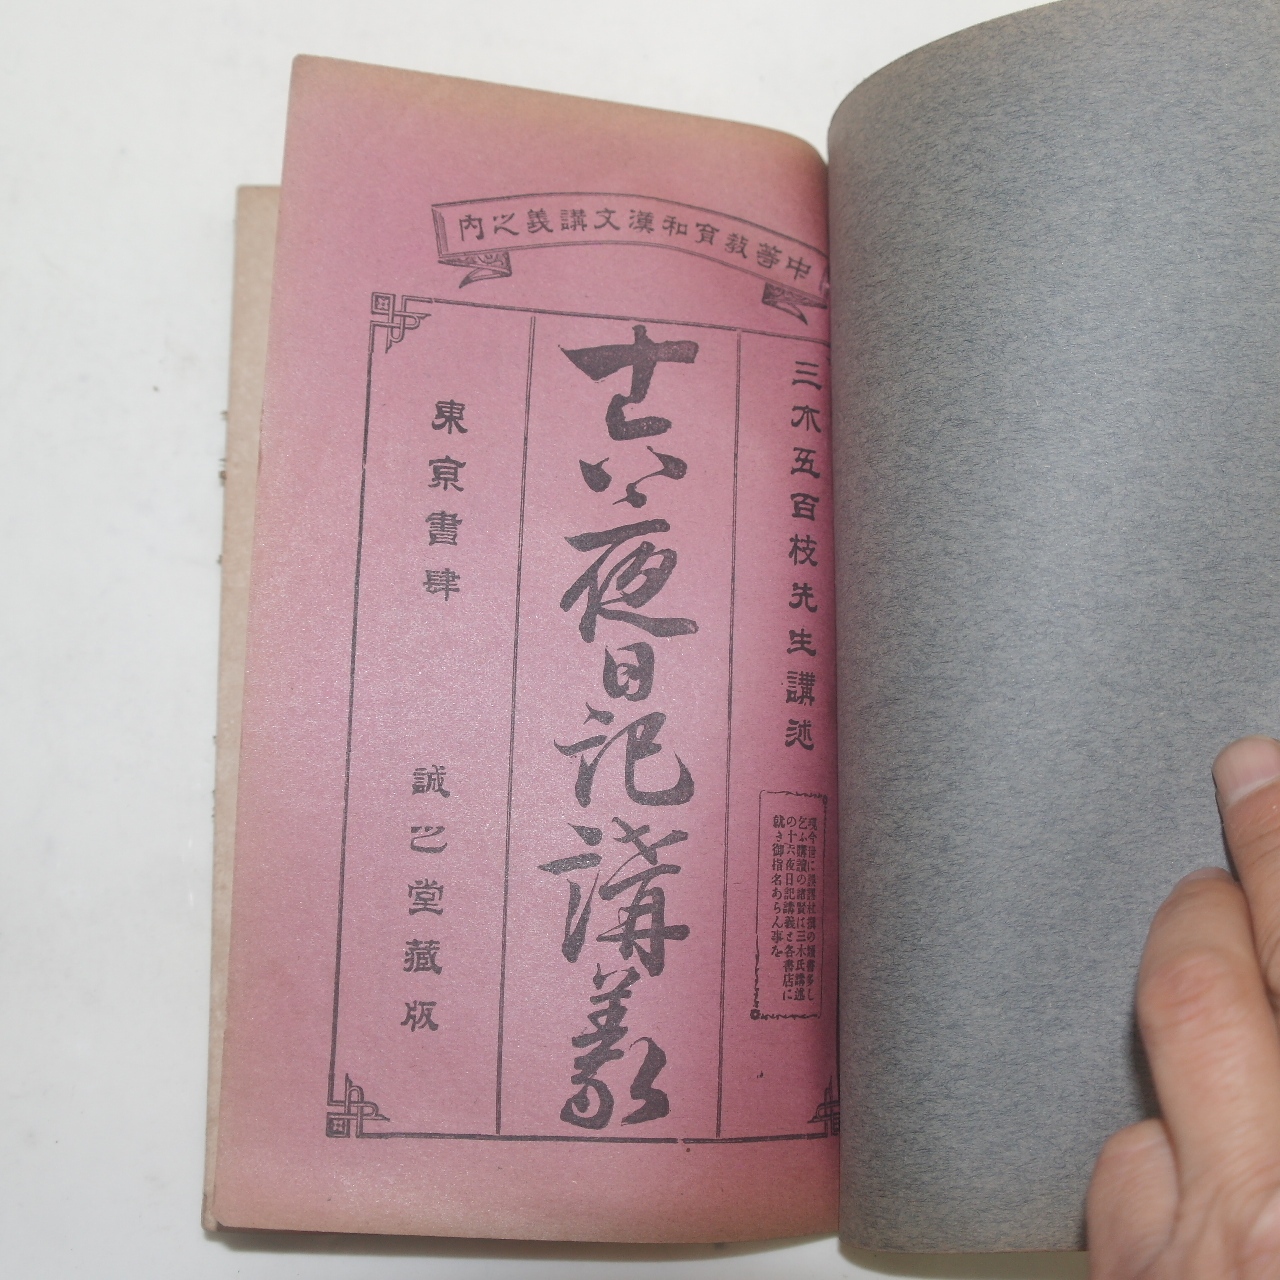 中等教育和漢文講義之内
三木五百枝先生講述
現今世に
乞ふ購讀の諸賢は三木氏講述
の十六夜日記講義と各書店に
就き御指名あらん事を
十六夜日記講義
東京書肆
誠之堂藏版